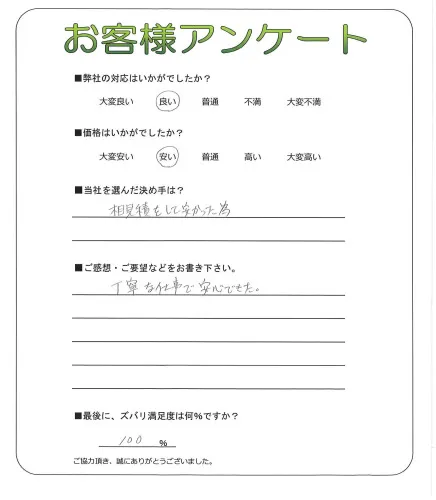 お客様アンケート
■弊社の対応はいかがでしたか?
大変良い 良い 普通 不満 大変不満
■価格はいかがでしたか?
大変安い 安い 普通 高い 大変高い
■当社を選んだ決め手は?
相見積をして安かった為
■ご感想・ご要望などをお書き下さい。
丁寧な仕事で安心でした。
■最後に、ズバリ満足度は何%ですか?
100 %
ご協力頂き、誠にありがとうございました。